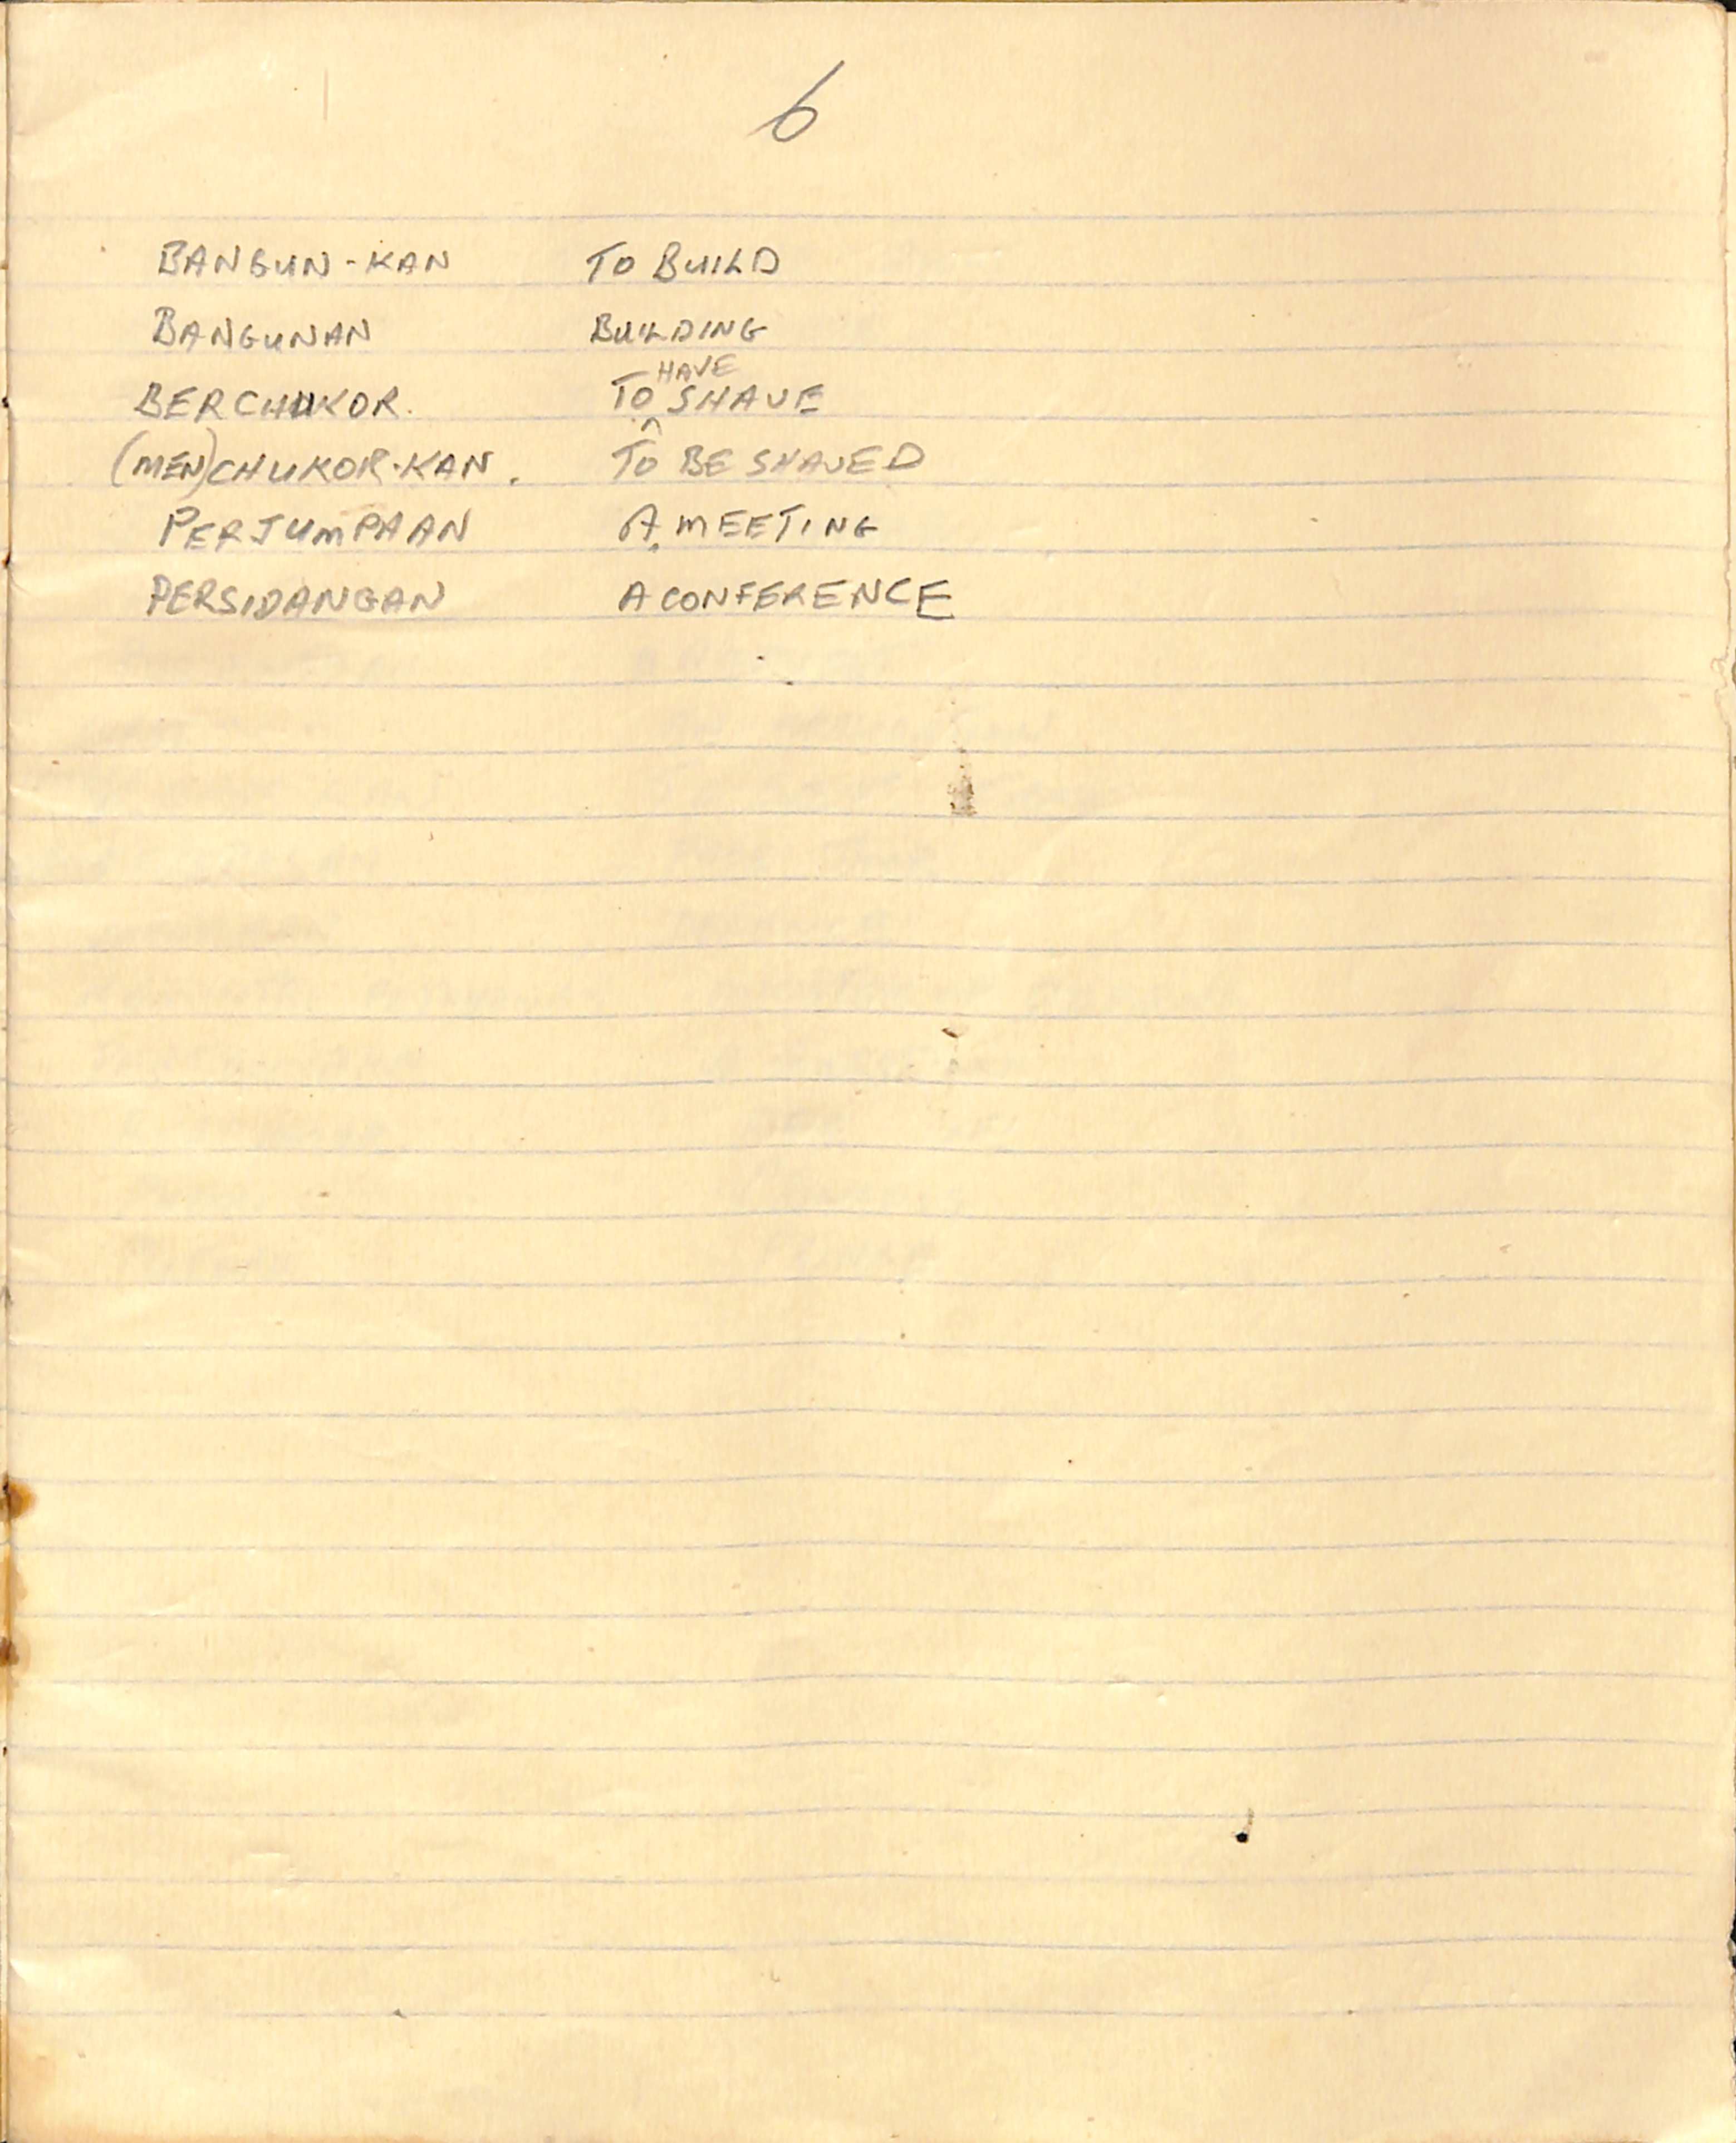 6
BANGUN-KAN TO BUILD
BANGUNAN BUILDING
BERCHUKOR. TO HAVE SHAVE
(MEN)CHUKOR-KAN. TO BE SHAVED
PERJUMPAAN A MEETING
PERSIDANGAN A CONFERENCE